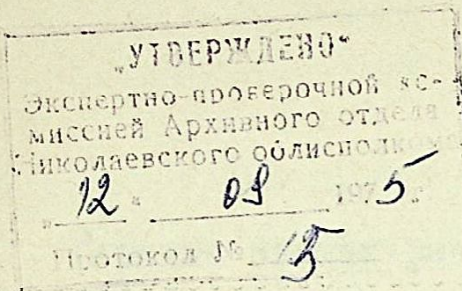 „УТВЕРЖДЕНО“
Экспертно-проверочной ко-
миссией Архивного отдела
Николаевского облисполкома
„12“ 09 1975г.
Протокол № 15